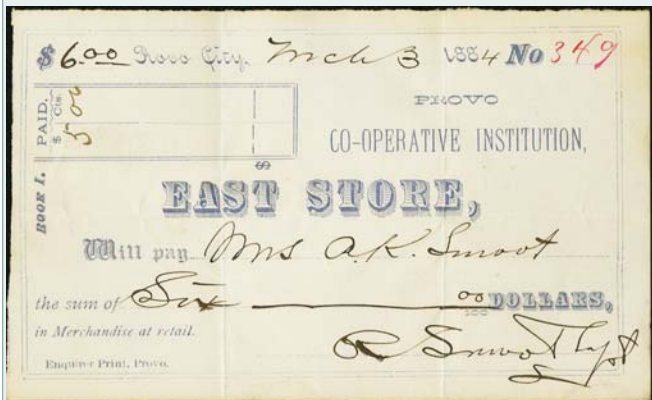 $6.00 Provo City, Mch 3 1884 No 349
BOOK 1.
PAID.
$ Cts.
5 00
$
PROVO
CO-OPERATIVE INSTITUTION,
EAST STORE,
Will pay Mrs A.K. Smoot
the sum of Six 00/100 DOLLARS,
in Merchandise at retail.
R Smoot
Enquirer Print, Provo.